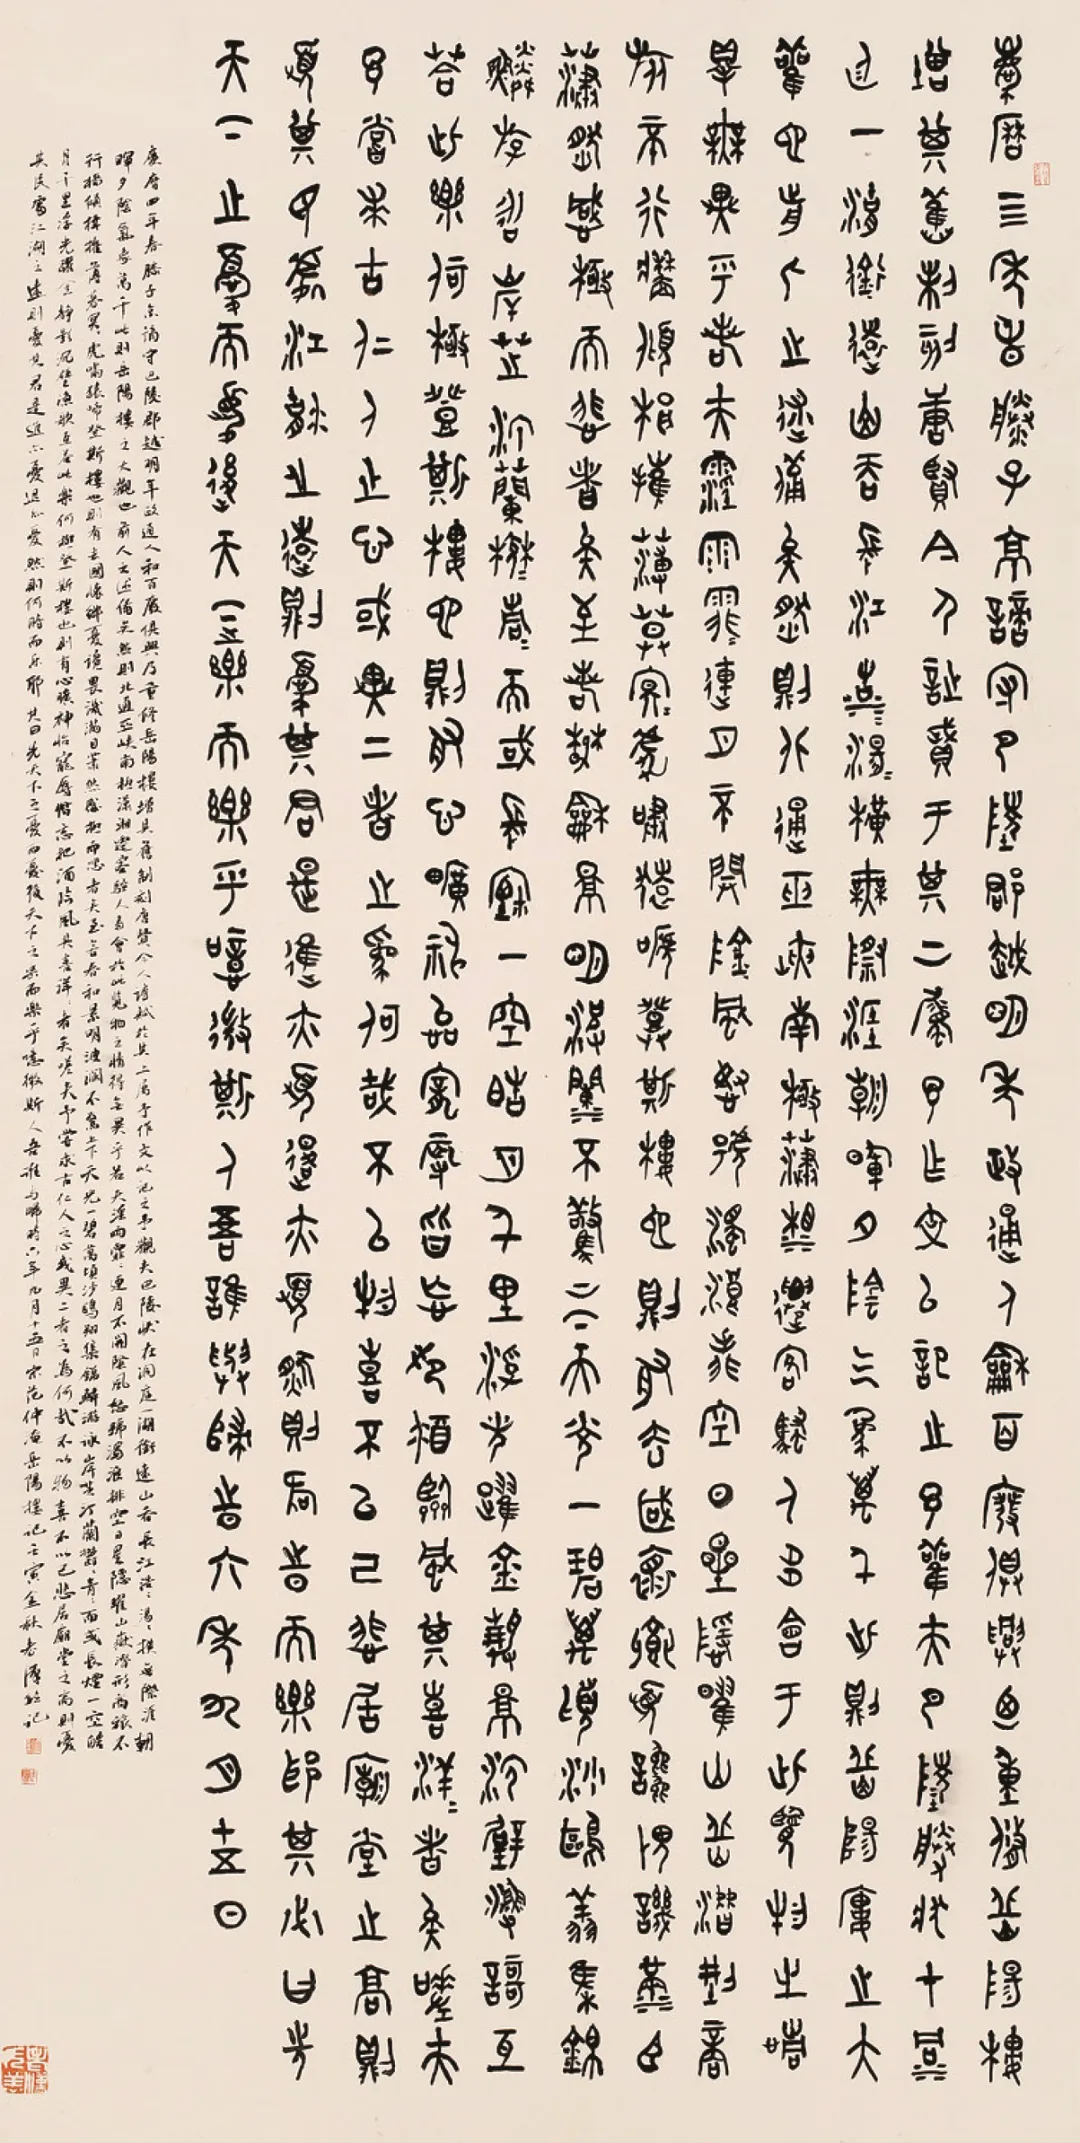 慶曆亖年春滕子京謫守巴陵郡越明年政通人和百廢俱興乃重修岳陽樓
增其舊制刻唐賢今人詩賦于其上屬予作文以記之予觀夫巴陵勝狀在洞
庭一湖銜遠山吞長江浩〻湯〻橫無際涯朝暉夕陰气象萬千此則岳陽樓之大
觀也前人之述備矣然則北通巫峽南極瀟湘遷客騷人多會于此覽物之情
得無異乎若夫霪雨霏〻連月不開陰風怒號濁浪排空日星隱曜山岳潛形商
旅不行檣傾楫摧薄暮冥〻虎嘯猿啼登斯樓也則有去國懷鄉憂讒畏譏滿目
蕭然感極而悲者矣至若春和景明波瀾不驚上下天光一碧萬頃沙鷗翔集錦
鱗游泳岸芷汀蘭郁〻青〻而或長煙一空皓月千里浮光躍金靜影沉璧漁歌互
答此樂何極登斯樓也則有心曠神怡寵辱皆忘把酒臨風其喜洋〻者矣嗟夫
予嘗求古仁人之心或異二者之為何哉不以物喜不以己悲居廟堂之高則
憂其民處江湖之遠則憂其君是進亦憂退亦憂然則何時而樂耶其必曰先
天下之憂而憂後天下之樂而樂乎噫微斯人吾誰與歸時六年九月十五日
慶曆四年春滕子京謫守巴陵郡越明年政通人和百廢俱興乃重修岳陽樓增其舊制刻唐賢今人詩賦於其上屬予作文以記之予觀夫巴陵勝狀在洞庭一湖銜遠山吞長江浩〻湯〻橫無際涯朝
暉夕陰氣象萬千此則岳陽樓之大觀也前人之述備矣然則北通巫峽南極瀟湘遷客騷人多會於此覽物之情得無異乎若夫淫雨霏〻連月不開陰風怒號濁浪排空日星隱耀山嶽潛形商旅不
行檣傾楫摧薄暮冥〻虎嘯猿啼登斯樓也則有去國懷鄉憂讒畏譏滿目蕭然感極而悲者矣至若春和景明波瀾不驚上下天光一碧萬頃沙鷗翔集錦鱗游泳岸芷汀蘭郁〻青〻而或長煙一空皓
月千里浮光躍金靜影沉璧漁歌互答此樂何極登斯樓也則有心曠神怡寵辱偕忘把酒臨風其喜洋〻者矣嗟夫予嘗求古仁人之心或異二者之為何哉不以物喜不以己悲居廟堂之高則憂
其民處江湖之遠則憂其君是進亦憂退亦憂然則何時而樂耶其曰先天下之憂而憂後天下之樂而樂乎噫微斯人吾誰與歸時六年九月十五日宋范仲淹岳陽樓記壬寅金秋記